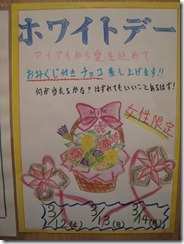 ホワイトデー
アイアイから愛を込めて
おみくじ付きチョコを差し上げます!!
何が当たるかな?はずれてもいいことあるはず!
女性限定
3/12(土)
3/13(日)
3/14(月)